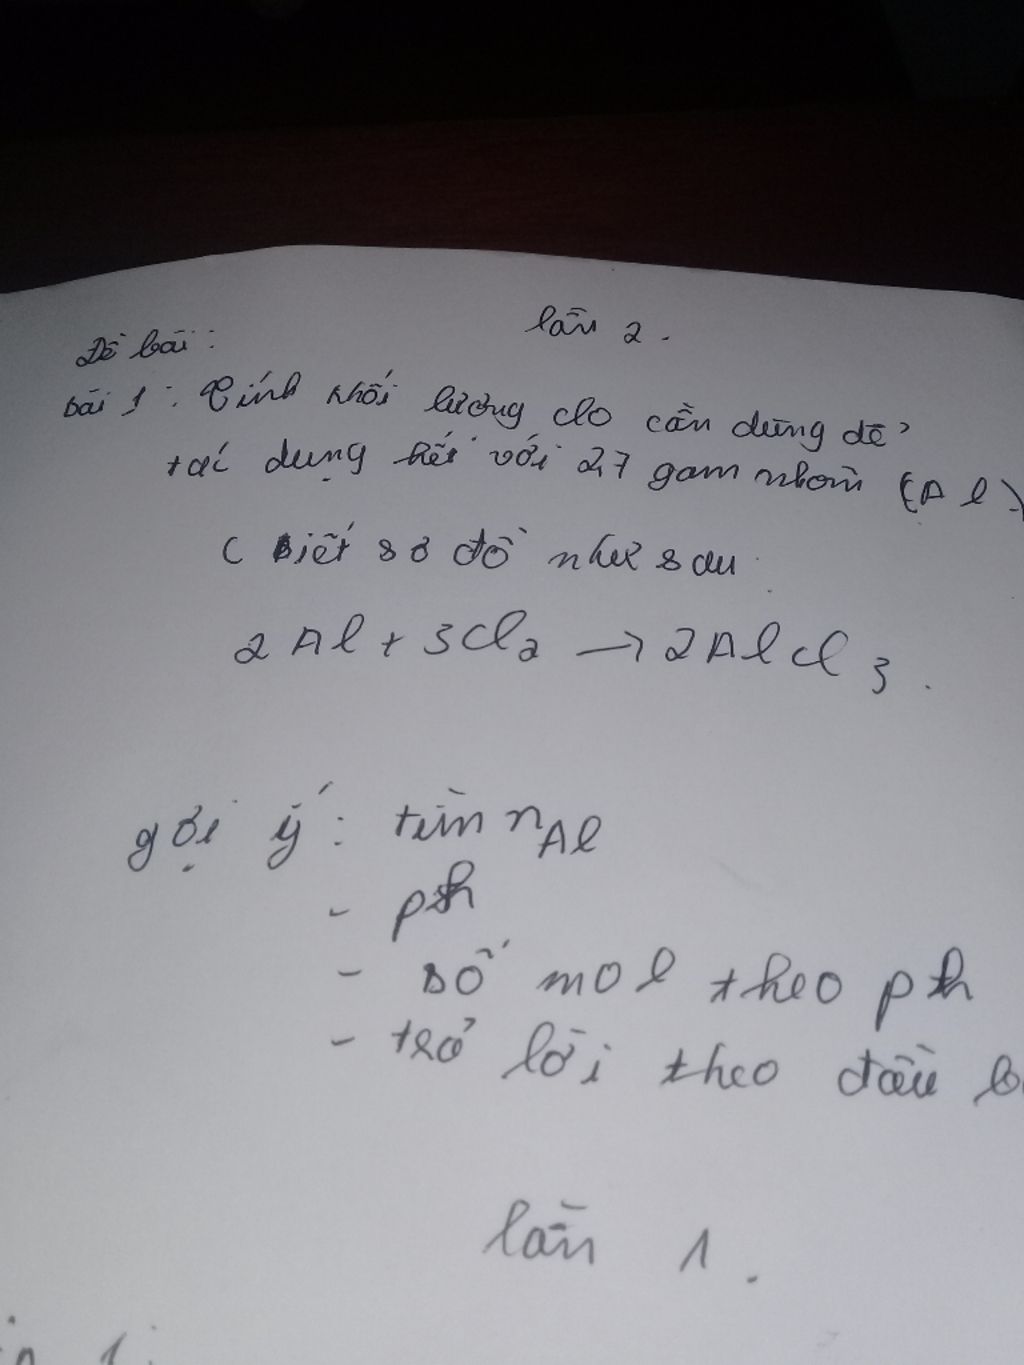 lần 2.
Đề bài:
bài 1: Tính khối lượng clo cần dùng để
tác dụng hết với 2,7 gam nhôm (Al)
( Biết sơ đồ như sau
2Al + 3Cl2 → 2AlCl3.
gợi ý: tìm nAl
- pth
- số mol theo pth
- trả lời theo đầu b
lần 1.